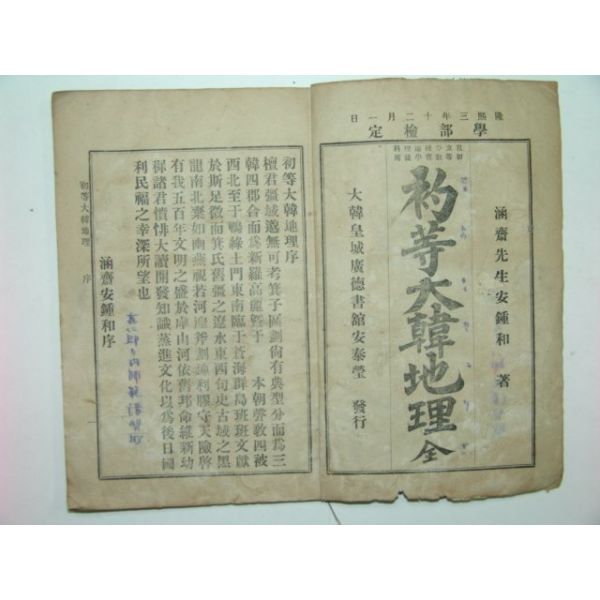 隆熙三年十二月一日
學部檢定
涵齋先生安鍾和 著
初等大韓地理 全
大韓皇城廣德書舘安泰瑩 發行
初等大韓地理序
檀君疆域邈無可考箕子區劃尙有典型分而爲三
韓四郡合而爲新羅高麗曁于 本朝聲敎四被
西北至于鴨綠土門東南臨于蒼海群島班班文獻
於斯足徵而箕氏舊疆之遼永東四句史古城之黑
龍南北棄如幽燕視若河湟
有我五百年文明之盛於摩山河依舊邦命維新幼
穉諸君慣俳大讀開發知識蒸進文化以爲後日國
利民福之幸深所望也
涵齋安鍾和序
初等大韓地理 序